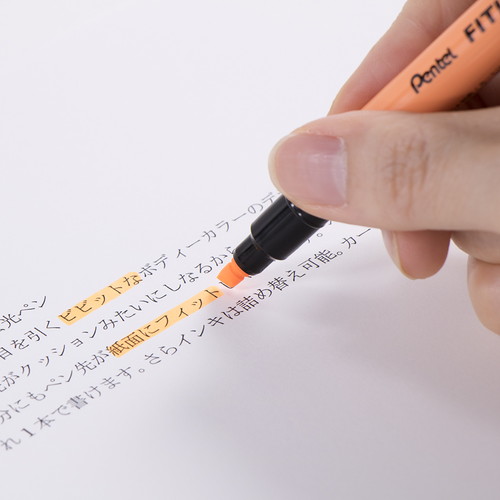 Pentel FIT
光ペン
目を引くビビットなボディーカラーの
がクッションみたいにしなるから
分にもペン先が紙面にフィット
れ1本で書けます。さらインキは詰め替え可能。カー